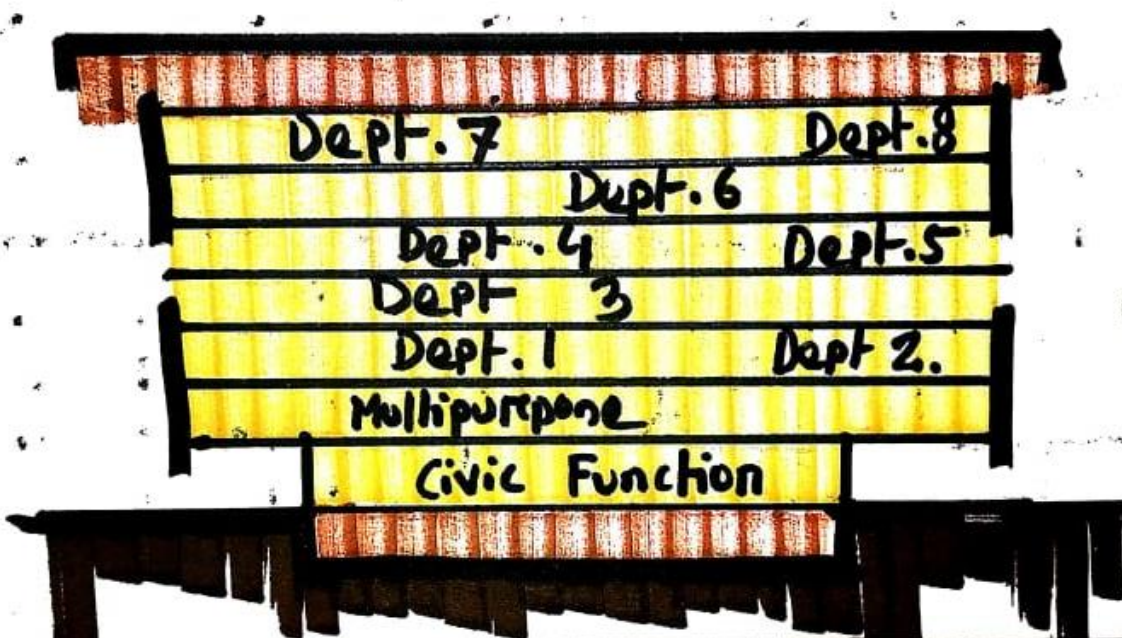 Dept. 7 Dept. 8
Dept. 6
Dept. 4 Dept. 5
Dept 3
Dept. 1 Dept 2.
Multipurpose
Civic Function